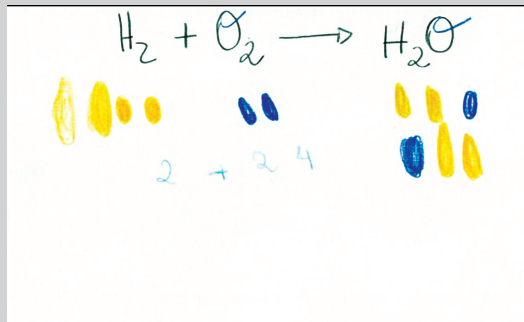 H₂ + O₂ → H₂O
2 + 2 4